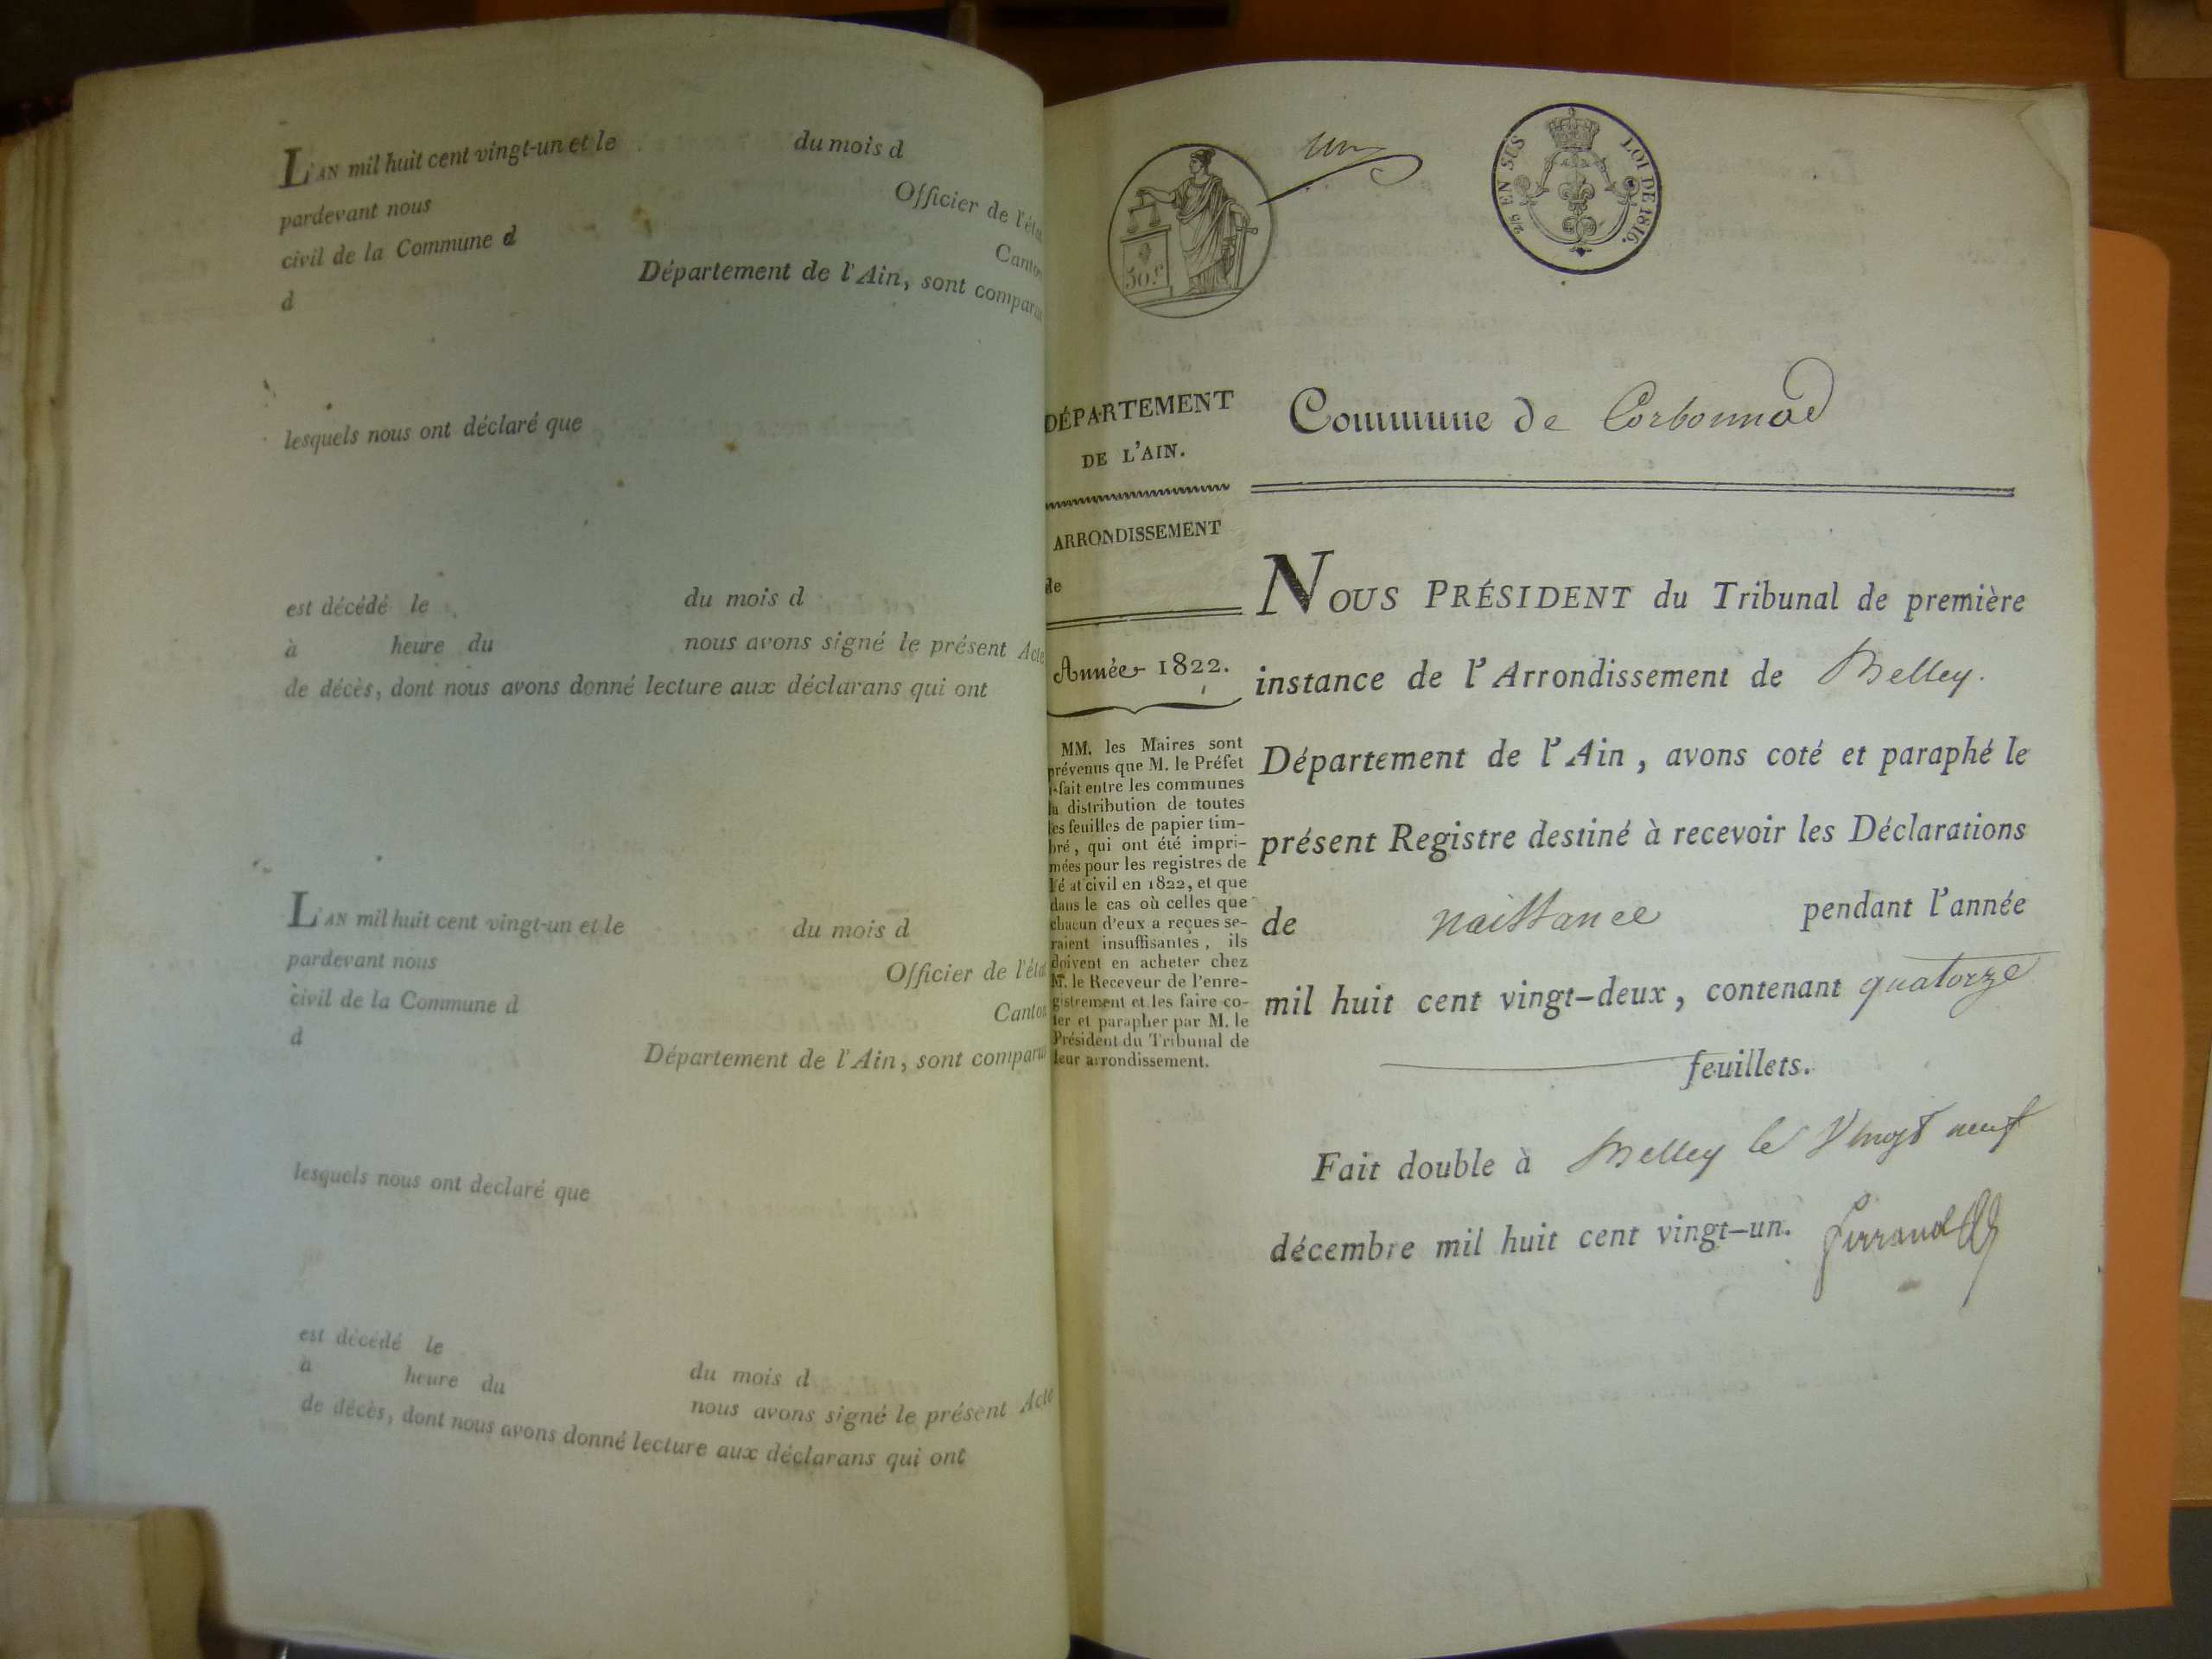 L'AN mil huit cent vingt-un et le du mois d
pardevant nous Officier de l'état
civil de la Commune d Canton
d Département de l'Ain, sont comparu
lesquels nous ont déclaré que
est décédé le du mois d
à heure du nous avons signé le présent Acte
de décès, dont nous avons donné lecture aux déclarans qui ont
L'AN mil huit cent vingt-un et le du mois d
pardevant nous Officier de l'état
civil de la Commune d Canton
d Département de l'Ain, sont comparu
lesquels nous ont declaré que
est décédé le du mois d
à heure du nous avons signé le présent Acte
de décès, dont nous avons donné lecture aux déclarans qui ont
50.c
un
2/5 EN SUS LOI DE 1816.
DÉPARTEMENT
DE L'AIN.
ARRONDISSEMENT
de
Année 1822.
MM. les Maires sont
prévenus que M. le Préfet
fait entre les communes
la distribution de toutes
les feuilles de papier tim-
bré, qui ont été impri-
mées pour les registres de
l'é at civil en 1822, et que
dans le cas où celles que
chacun d'eux a reçues se-
raient insuffisantes, ils
doivent en acheter chez
M. le Receveur de l'enre-
gistrement et les faire co-
ter et parapher par M. le
Président du Tribunal de
leur arrondissement.
Commune de Corbonnod
NOUS PRÉSIDENT du Tribunal de première
instance de l'Arrondissement de Belley.
Département de l'Ain, avons coté et paraphé le
présent Registre destiné à recevoir les Déclarations
de naissance pendant l'année
mil huit cent vingt-deux, contenant quatorze
feuillets.
Fait double à Belley le Vingt neuf
décembre mil huit cent vingt-un.